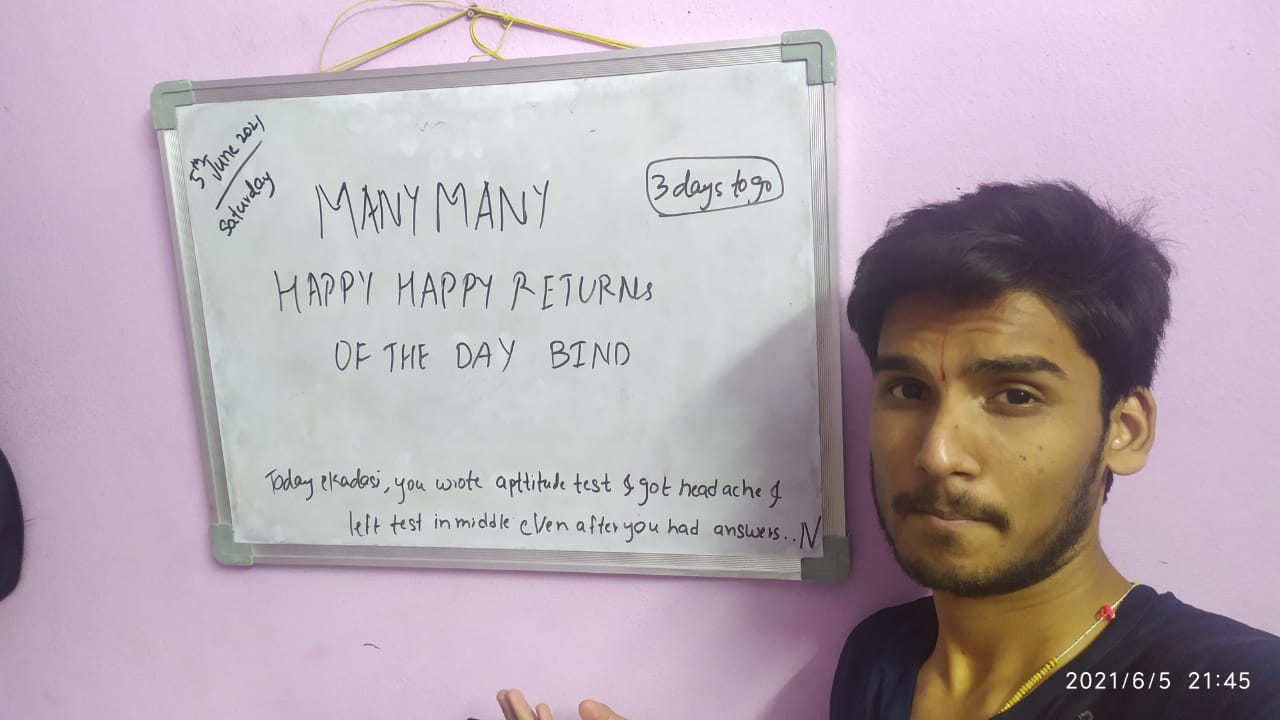 5th June 2021
Saturday
3 days to go
MANY MANY
HAPPY HAPPY RETURNs
OF THE DAY BIND
Today ekadasi, you wrote apttitude test & got head ache &
left test in middle even after you had answers.. N
2021/6/5 21:45